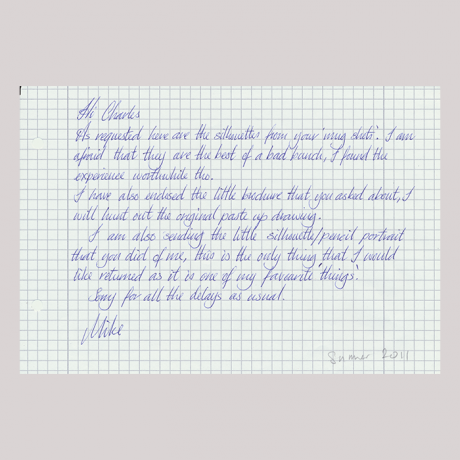 Hi Charles,
As requested here are the silhouettes from your 'mug shots'. I am
afraid that they are the best of a bad bunch, I found the
experience worthwhile tho.
I have also enclosed the little brochure that you asked about, I
will hunt out the original paste up drawing.
I am also sending the little silhouette/pencil portrait
that you did of me, this is the only thing that I would
like returned as it is one of my favourite 'things'.
Sorry for all the delays as usual.
Mike
Summer 2011